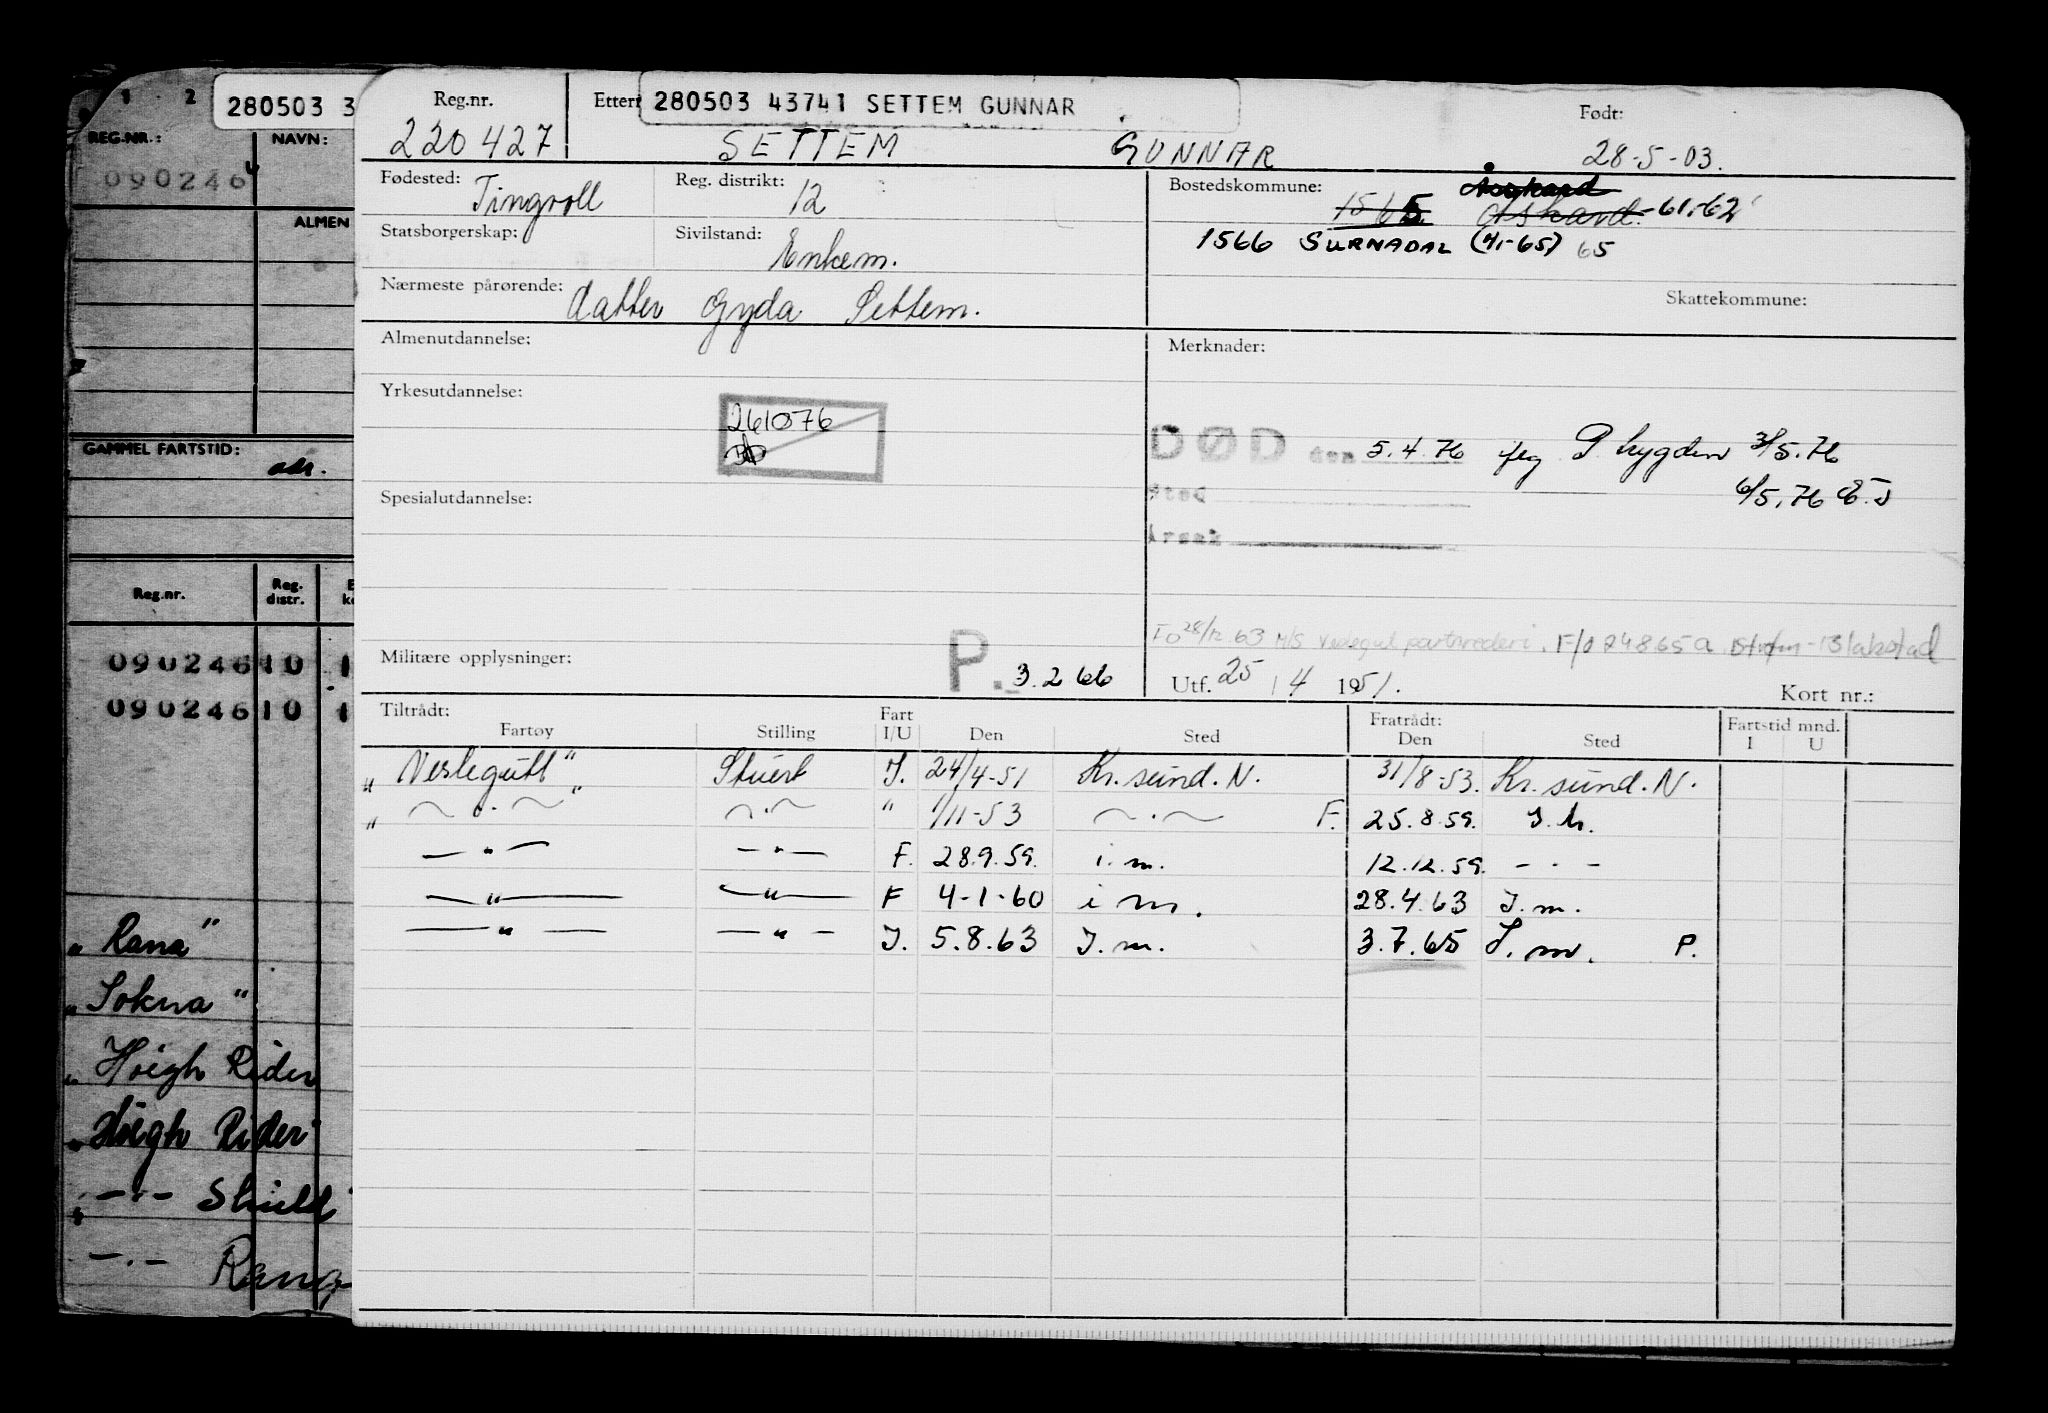 1 2
280503 3
REG.NR.: NAVN:
090246
ALMEN
GAMMEL FARTSTID:
adr.
Reg.nr. Reg. distr.
090246 10 1
090246 10 1
„ Rana "
„ Sokna "
„ Höegh Rider
„ Höegh Rider"
„ -·- Shield
-·- Rang
Reg.nr. Ettern 280503 43741 SETTEM GUNNAR Født:
220427 SETTEM GUNNAR 28-5-03.
Fødested: Tingvoll Reg. distrikt: 12 Bostedskommune: 1565 Åsskard 61-62
Statsborgerskap: Sivilstand: Enkem. 1566 SURNADAL (4-65) 65
Nærmeste pårørende: datter Gyda Settem. Skattekommune:
Almenutdannelse: Merknader:
Yrkesutdannelse:
261076
DØD den 5.4.76 flg P trygden 3/5.76
Sted 6/5.76
Spesialutdannelse:
Årsak
28/12 63 M/S Veslegut partsrederi. F/O 24865 a
Militære opplysninger: P. 3.2 66 Utf. 25 / 4 1951. Kort nr.:
Tiltrådt: Fart Fratrådt: Fartstid mnd.
Fartøy Stilling I/U Den Sted Den Sted I U
„ Veslegutt" Stuert I. 24/4-51 Kr.sund.N. 31/8-53. Kr.sund.N.
„ ~·~" ~·~ " 1/11-53 ~·~ F. 25.8.59. I.m.
—"— —"— F. 28.9.59. i.m. 12.12.59. - · -
—"— —"— F 4-1-60 i m. 28.4.63 I.m.
—"— —"— I. 5.8.63 I.m. 3.7.65 I.m. P.